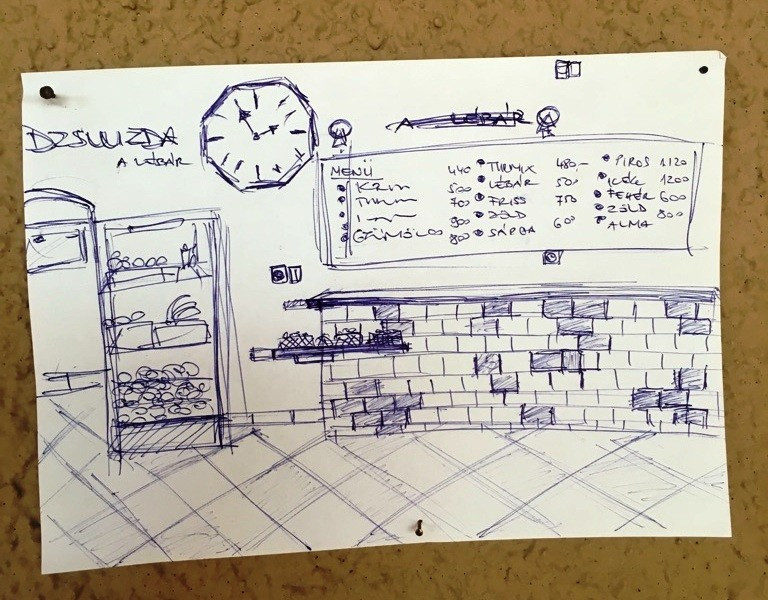 DZSUUZDA
A LÉBÁR
A LÉBÁR
MENÜ
440
500
700
900
GYÜMÖLCS 800
TURMIX 480.-
LÉBÁR 50
FRISS 750
ZÖLD
SÁRGA 600
PIROS 1120
KÉK 1200
FEHÉR 600
ZÖLD 800
ALMA